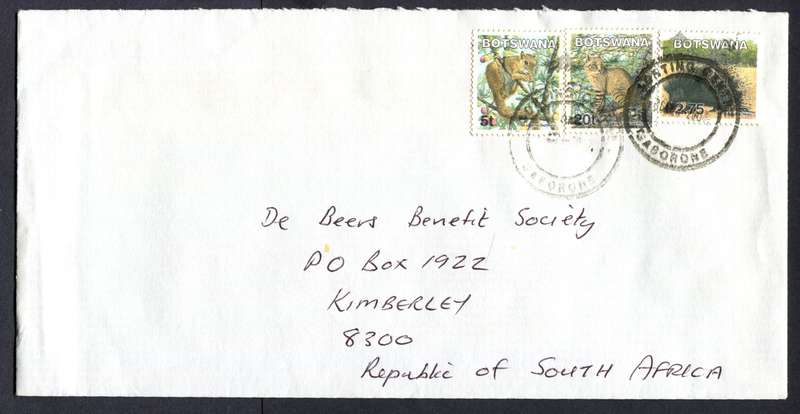 BOTSWANA BOTSWANA BOTSWANA
5t 20t P2.75
GABORONE GABORONE
De Beers Benefit Society
PO Box 1922
KIMBERLEY
8300
Republic of SOUTH AFRICA